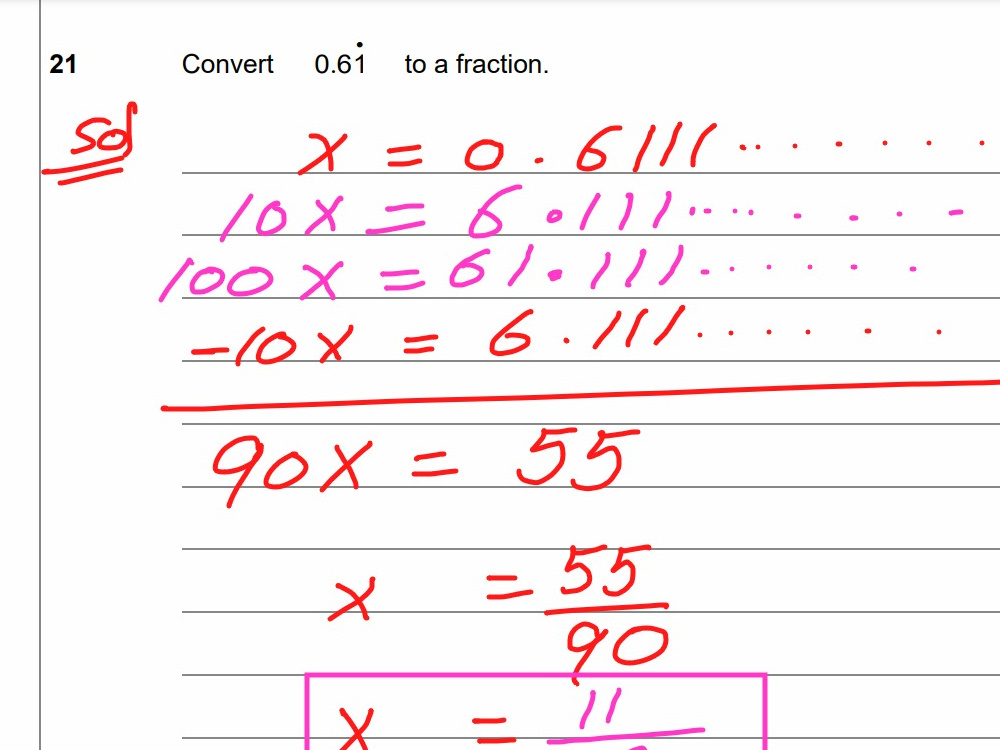 21 Convert 0.61̇ to a fraction.
Sol
x = 0.6111.......
10x = 6.111........
100x = 61.111......
-10x = 6.111......
90x = 55
x = 55/90
x = 11